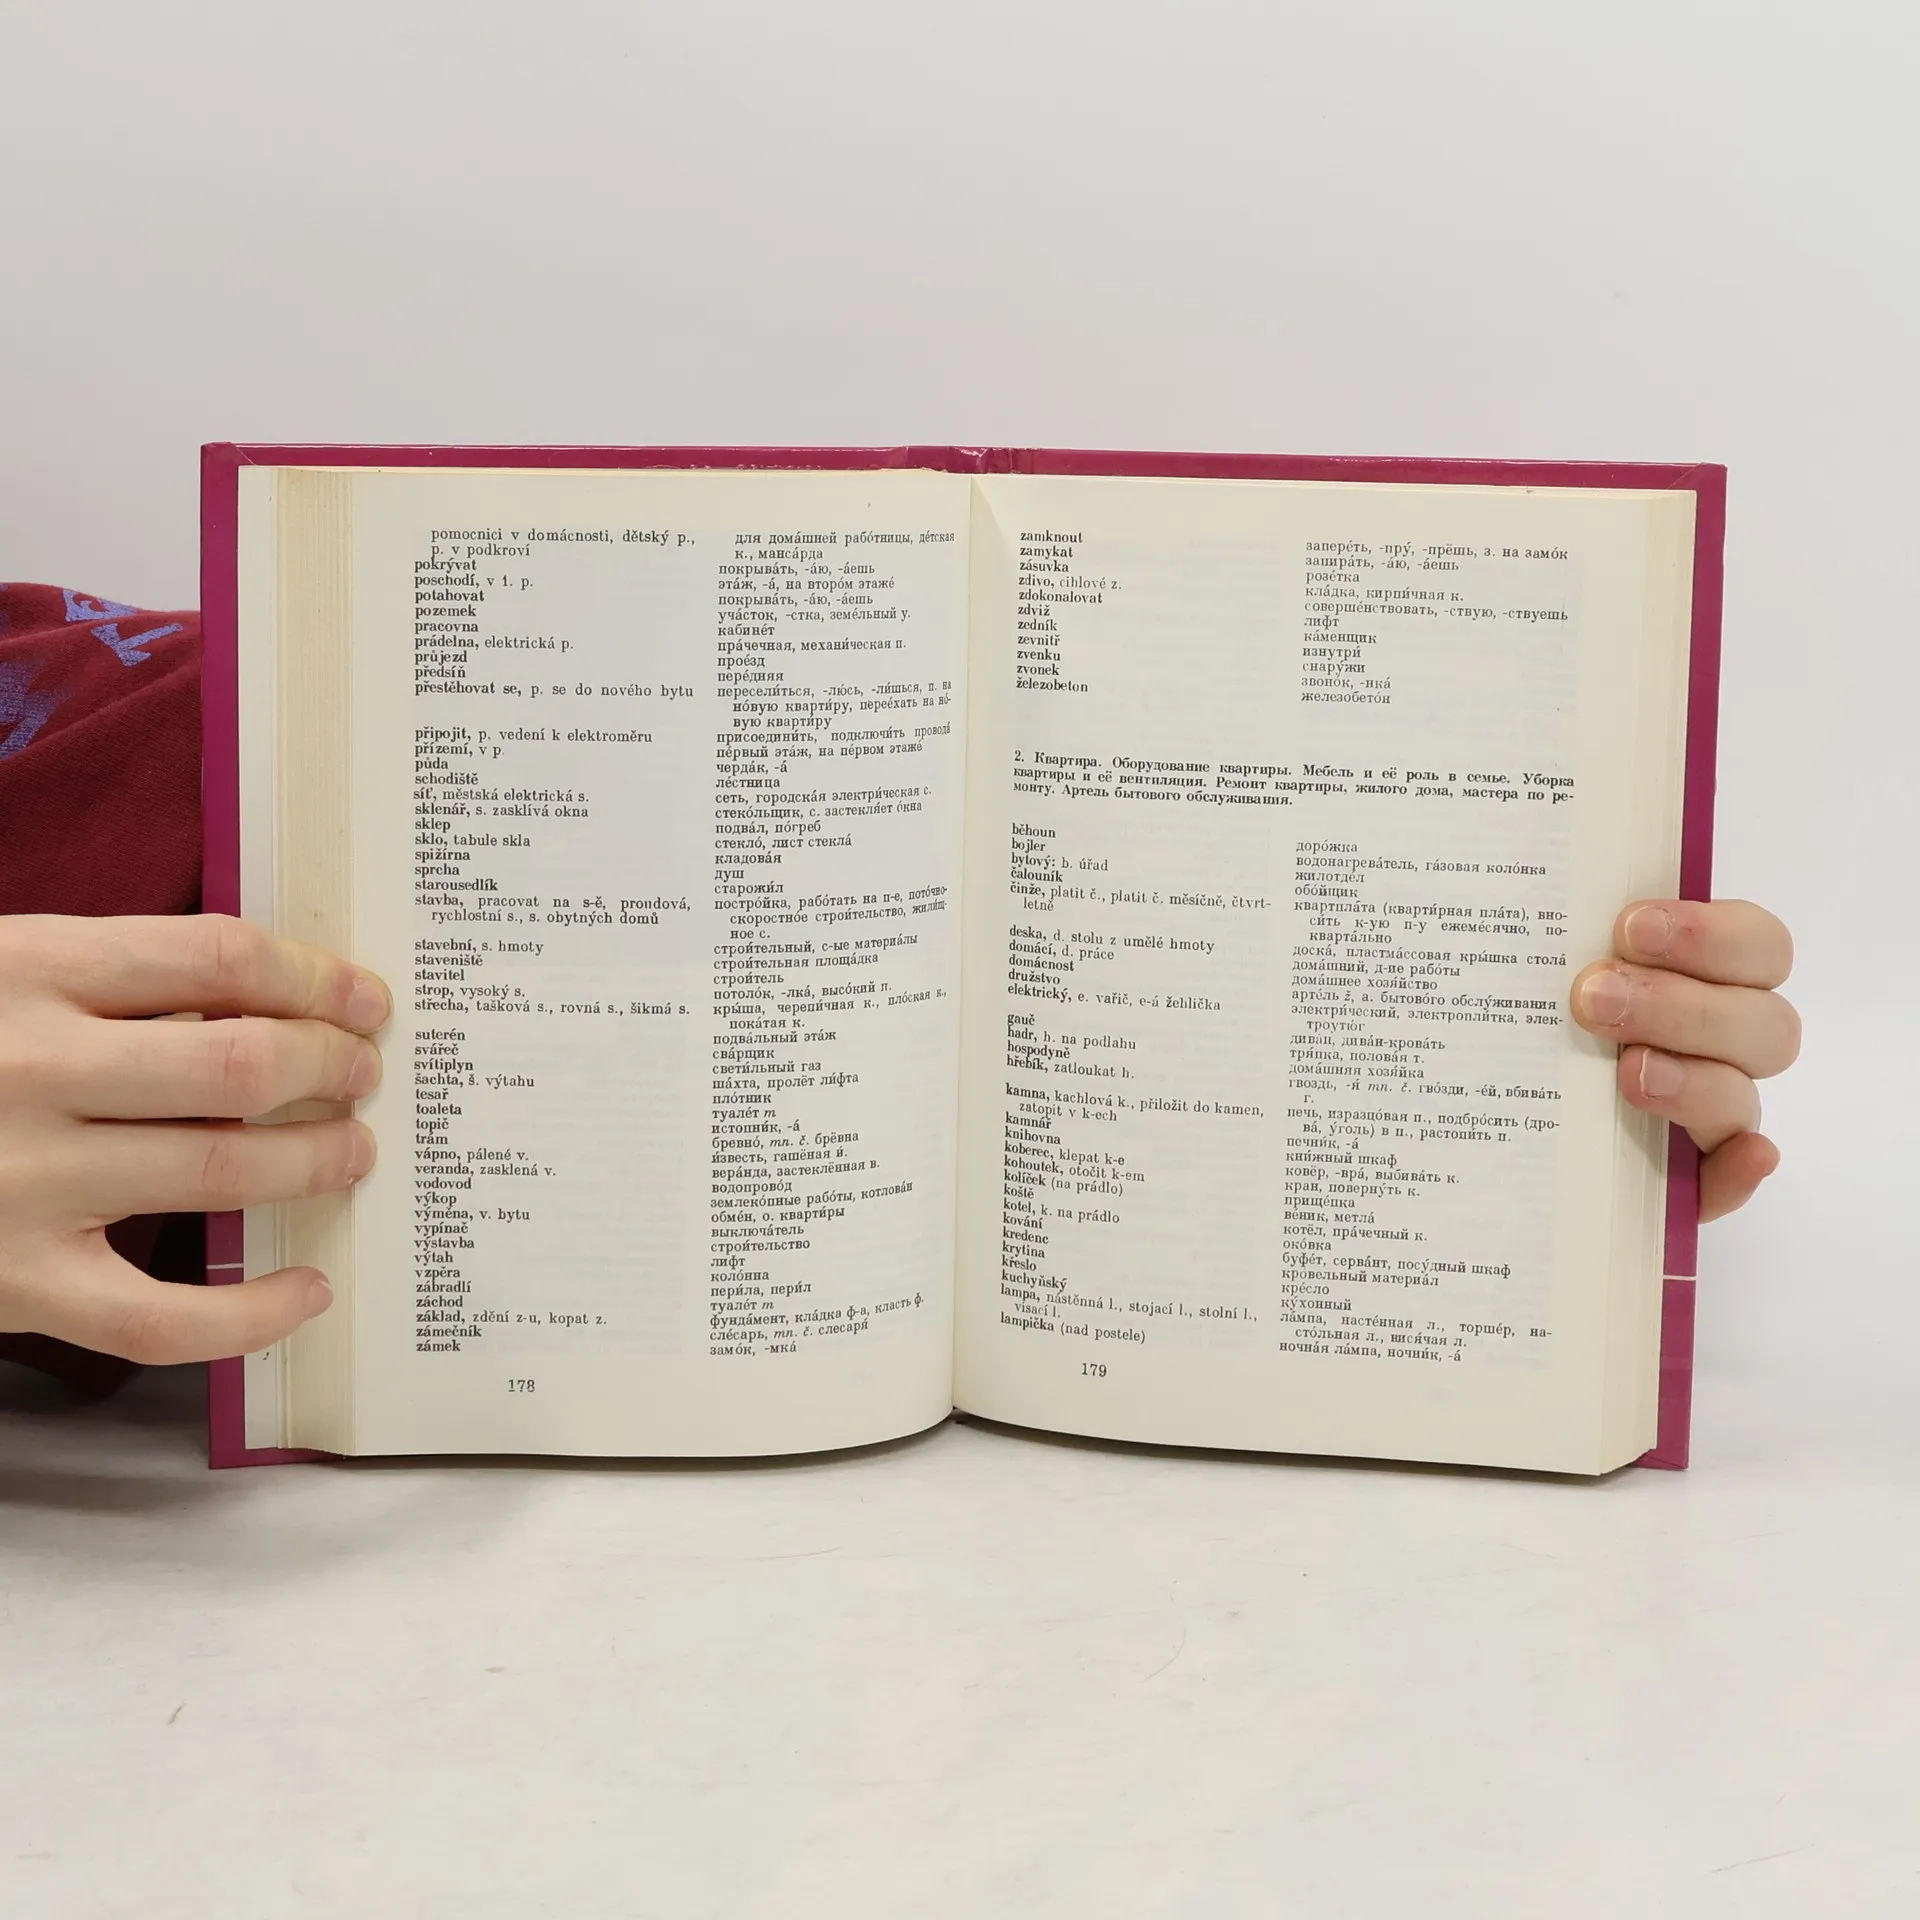 pomocnici v domácnosti, dětský p.,
p. v podkroví
pokrývat
poschodí, v 1. p.
potahovat
pozemek
pracovna
prádelna, elektrická p.
průjezd
předsíň
přestěhovat se, p. se do nového bytu
připojit, p. vedení k elektroměru
přízemí, v p.
půda
schodiště
síť, městská elektrická s.
sklenář, s. zasklívá okna
sklep
sklo, tabule skla
spižírna
sprcha
starousedlík
stavba, pracovat na s-ě, proudová,
rychlostní s., s. obytných domů
stavební, s. hmoty
staveniště
stavitel
strop, vysoký s.
střecha, tašková s., rovná s., šikmá s.
suterén
svářeč
svítiplyn
šachta, š. výtahu
tesař
toaleta
topič
trám
vápno, pálené v.
veranda, zasklená v.
vodovod
výkop
výměna, v. bytu
vypínač
výstavba
výtah
vzpěra
zábradlí
záchod
základ, zdění z-u, kopat z.
zámečník
zámek
для дома́шней рабо́тницы, де́тская
к., манса́рда
покрыва́ть, -а́ю, -а́ешь
эта́ж, -а́, на второ́м этаже́
покрыва́ть, -а́ю, -а́ешь
уча́сток, -стка, земе́льный у.
кабине́т
пра́чечная, механи́ческая п.
прое́зд
пере́дняя
пересели́ться, -лю́сь, -ли́шься, п. на
но́вую кварти́ру, перее́хать на но́-
вую кварти́ру
присоедини́ть, подключи́ть провода́
пе́рвый эта́ж, на пе́рвом этаже́
черда́к, -а́
ле́стница
сеть, городска́я электри́ческая с.
стеко́льщик, с. застекля́ет о́кна
подва́л, по́греб
стекло́, лист стекла́
кладова́я
душ
старожи́л
постро́йка, рабо́тать на п-е, пото́чно-
скоростно́е строи́тельство, жили́щ-
ное с.
строи́тельный, с-ые материа́лы
строи́тельная площа́дка
строи́тель
потоло́к, -лка́, высо́кий п.
кры́ша, черепи́чная к., пло́ская к.,
пока́тая к.
подва́льный эта́ж
сва́рщик
свети́льный газ
ша́хта, пролёт ли́фта
пло́тник
туале́т m
истопни́к, -а́
бревно́, mn. č. брёвна
и́звесть, гашёная и́.
вера́нда, застеклённая в.
водопрово́д
землеко́пные рабо́ты, котлова́н
обме́н, о. кварти́ры
выключа́тель
строи́тельство
лифт
коло́нна
пери́ла, пери́л
туале́т m
фунда́мент, кла́дка ф-а, класть ф.
сле́сарь, mn. č. слесаря́
замо́к, -мка́
178
zamknout
zamykat
zásuvka
zdivo, cihlové z.
zdokonalovat
zdviž
zedník
zevnitř
zvenku
zvonek
železobeton
запере́ть, -пру́, -прёшь, з. на замо́к
запира́ть, -а́ю, -а́ешь
розе́тка
кла́дка, кирпи́чная к.
соверше́нствовать, -ствую, -ствуешь
лифт
ка́менщик
изнутри́
снару́жи
звоно́к, -нка́
железобето́н
2. Квартира. Оборудование квартиры. Мебель и её роль в семье. Уборка
квартиры и её вентиляция. Ремонт квартиры, жилого дома, мастера по ре-
монту. Артель бытового обслуживания.
běhoun
bojler
bytový: b. úřad
čalouník
činže, platit č., platit č. měsíčně, čtvrt-
letně
deska, d. stolu z umělé hmoty
domácí, d. práce
domácnost
družstvo
elektrický, e. vařič, e-á žehlička
gauč
hadr, h. na podlahu
hospodyně
hřebík, zatloukat h.
kamna, kachlová k., přiložit do kamen,
zatopit v k-ech
kamnář
knihovna
koberec, klepat k-e
kohoutek, otočit k-em
kolíček (na prádlo)
koště
kotel, k. na prádlo
kování
kredenc
krytina
křeslo
kuchyňský
lampa, nástěnná l., stojací l., stolní l.,
visací l.
lampička (nad postele)
доро́жка
водонагрева́тель, га́зовая коло́нка
жилотде́л
обо́йщик
квартпла́та (кварти́рная пла́та), вно-
си́ть к-ую п-у ежеме́сячно, по-
кварта́льно
доска́, пластма́ссовая кры́шка стола́
дома́шний, д-ие рабо́ты
дома́шнее хозя́йство
арте́ль ž, а. бытово́го обслу́живания
электри́ческий, электропли́тка, элек-
троутю́г
дива́н, дива́н-крова́ть
тря́пка, полова́я т.
дома́шняя хозя́йка
гвоздь, -я́ mn. č. гво́зди, -е́й, вбива́ть
г.
печь, изразцо́вая п., подбро́сить (дро-
ва́, у́голь) в п., растопи́ть п.
печни́к, -а́
кни́жный шкаф
ковёр, -вра́, выбива́ть к.
кран, поверну́ть к.
прище́пка
ве́ник, метла́
котёл, пра́чечный к.
око́вка
буфе́т, серва́нт, посу́дный шкаф
кровельный материа́л
кре́сло
ку́хонный
ла́мпа, насте́нная л., торше́р, на-
сто́льная л., вися́чая л.
ночна́я ла́мпа, ночни́к, -а́
179